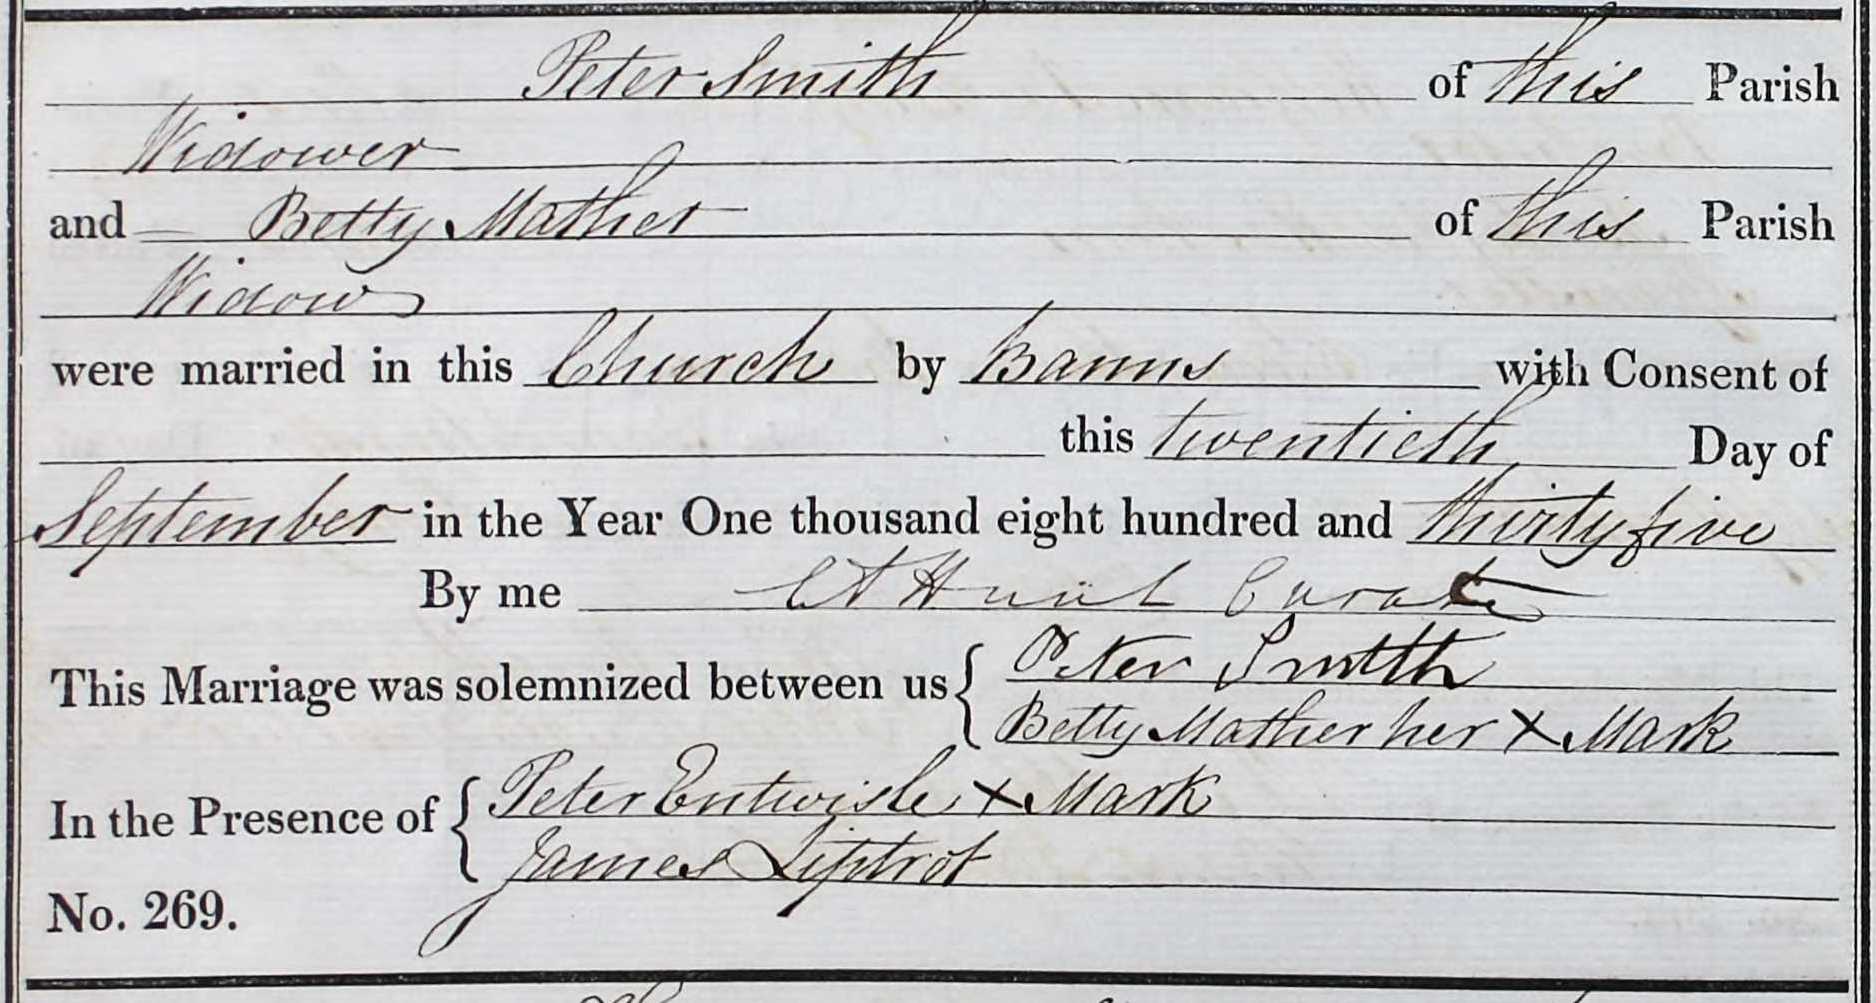 Peter Smith of this Parish
Widower
and Betty Mather of this Parish
Widow
were married in this Church by Banns with Consent of
this twentieth Day of
September in the Year One thousand eight hundred and thirty five
By me Curate
This Marriage was solemnized between us { Peter Smith
Betty Mather her X Mark
In the Presence of { Peter Entwisle X Mark
James Liptrot
No. 269.